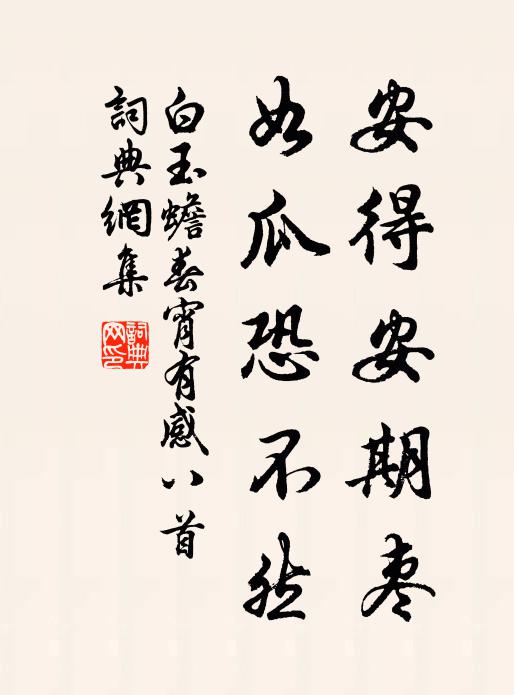 安得安期枣
如瓜恐不然
白玉蟾春宵有感八首
詞典網集
詞典网印